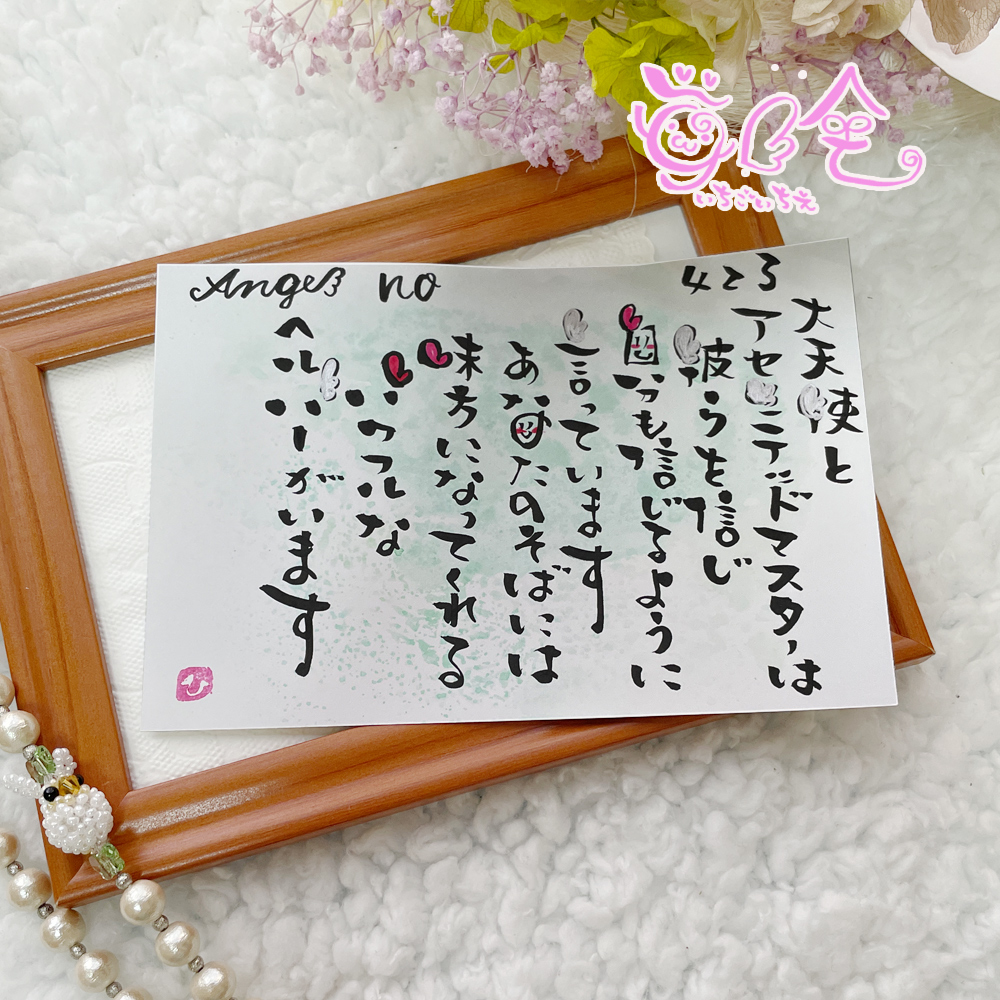 Angel no 423
大天使と
アセンテッドマスターは
彼らを信じ
自分も信じるように
言っています
あなたのそばには
味方になってくれる
パワフルな
ヘルパーがいます
いちごいちえ